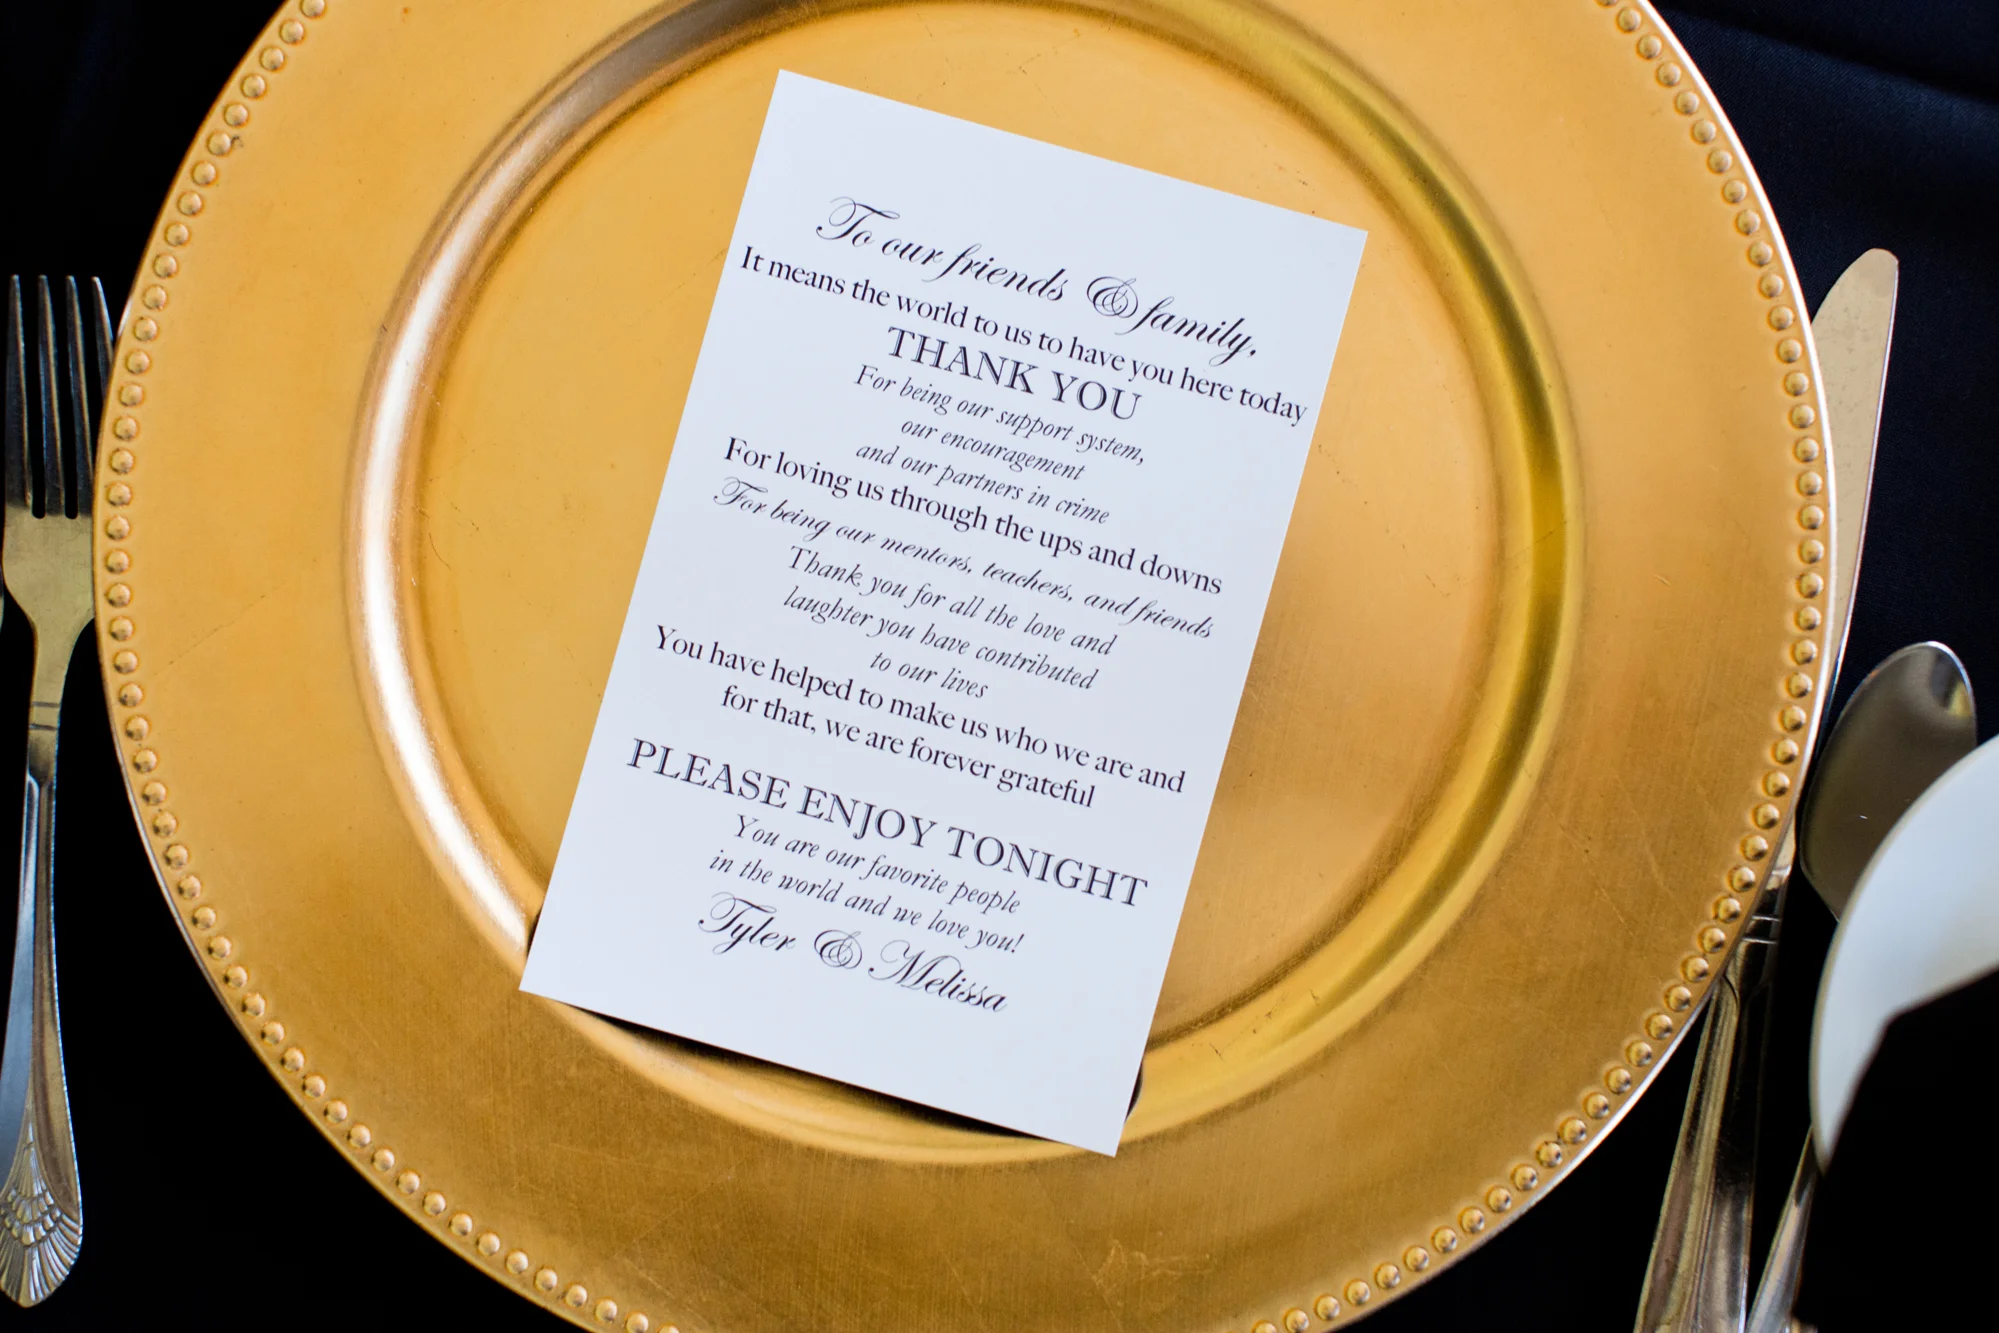 To our friends & family,
It means the world to us to have you here today
THANK YOU
For being our support system,
our encouragement
and our partners in crime
For loving us through the ups and downs
For being our mentors, teachers, and friends
Thank you for all the love and
laughter you have contributed
to our lives
You have helped to make us who we are and
for that, we are forever grateful
PLEASE ENJOY TONIGHT
You are our favorite people
in the world and we love you!
Tyler & Melissa